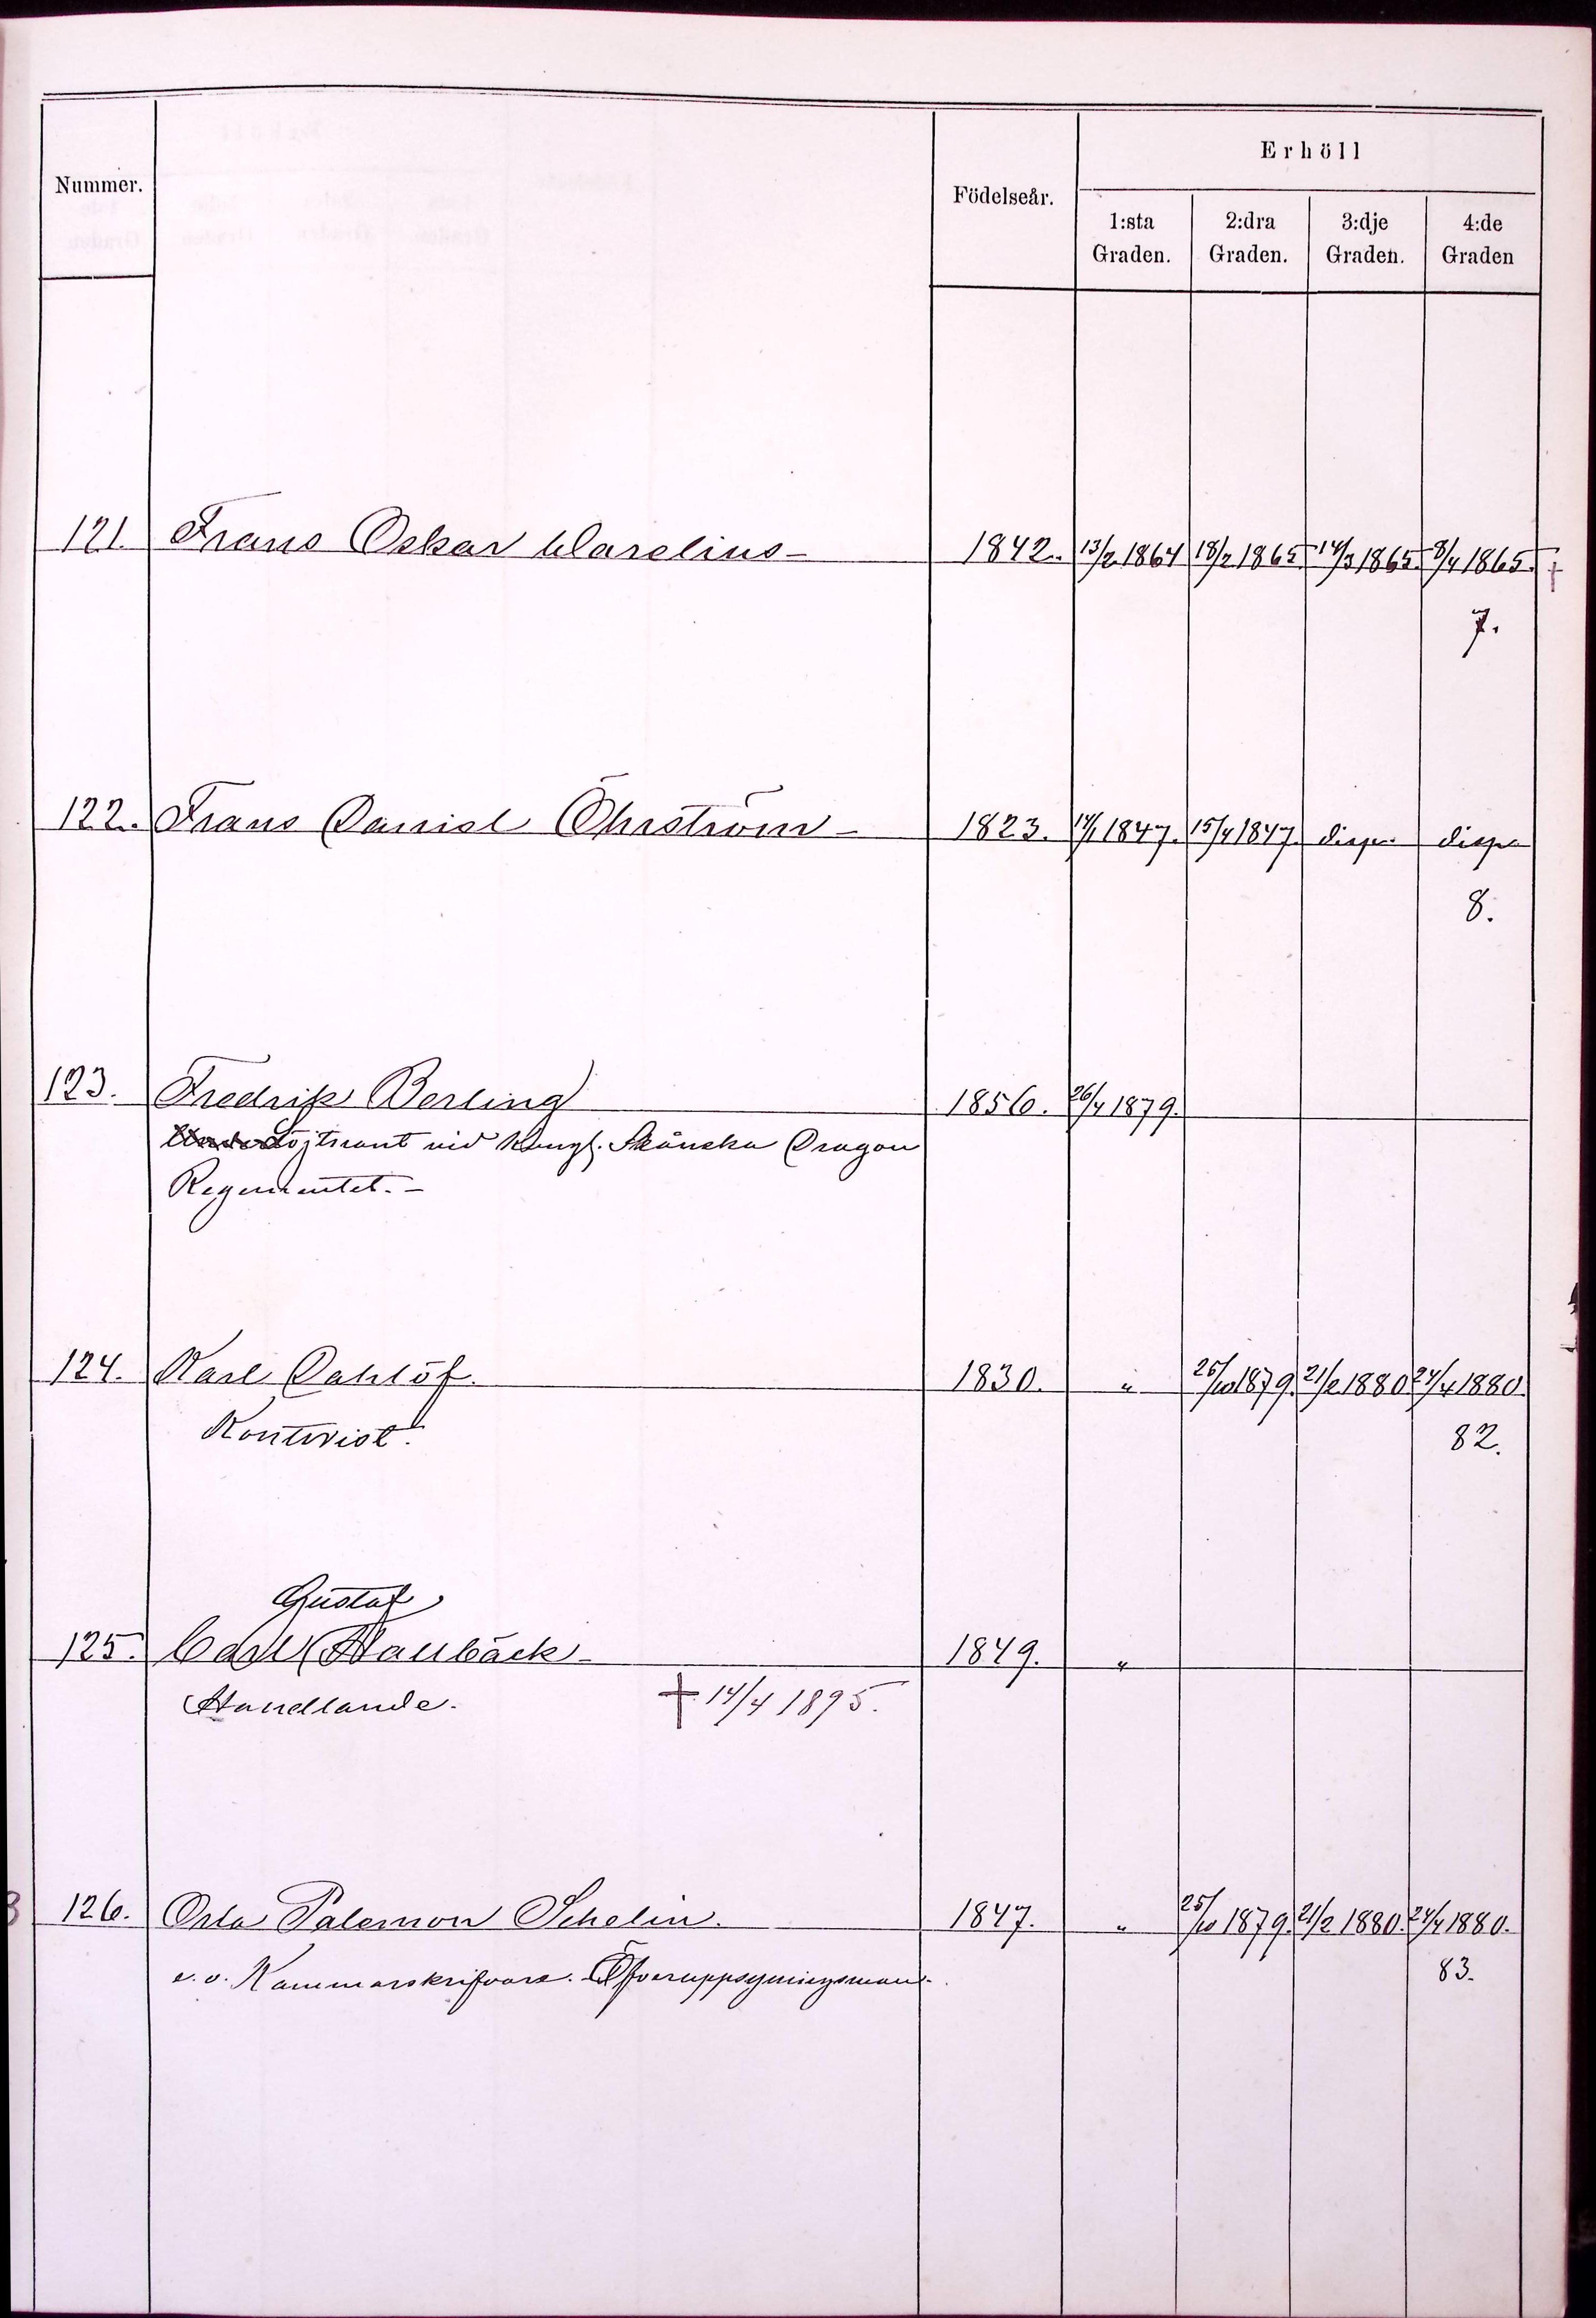 Erhöll
Nummer. Födelseår. 1:sta Graden. 2:dra Graden. 3:dje Graden. 4:de Graden
121. Frans Oskar Clarelius- 1842. 13/2 1864 18/2 1865. 14/3 1865. 8/4 1865. †
7.
122. Frans Daniel Öhrström- 1823. 15/4 1847. disp. disp.
8.
123. Fredrik Berling 1856. 26/4 1879.
Löjtnant vid Kongl. Skånska Dragon
Regementet.-
124. Karl Dahlöf. 1830. " 25/10 1879. 21/2 1880 24/4 1880.
Kontorist. 82.
Gustaf
125. Carl Hallbäck- 1849. "
Handlande. † 14/4 1895.
126. Orla Palemon Schelin. 1847. " 25/10 1879. 21/2 1880. 24/4 1880.
e.o. Kammarskrifvare. Öfveruppsyningsman. 83.